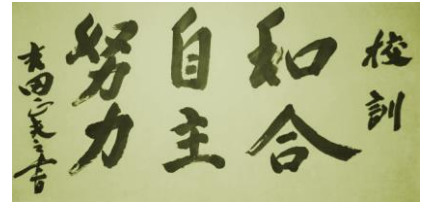 校訓
和合
自主
努力
吉田正美書